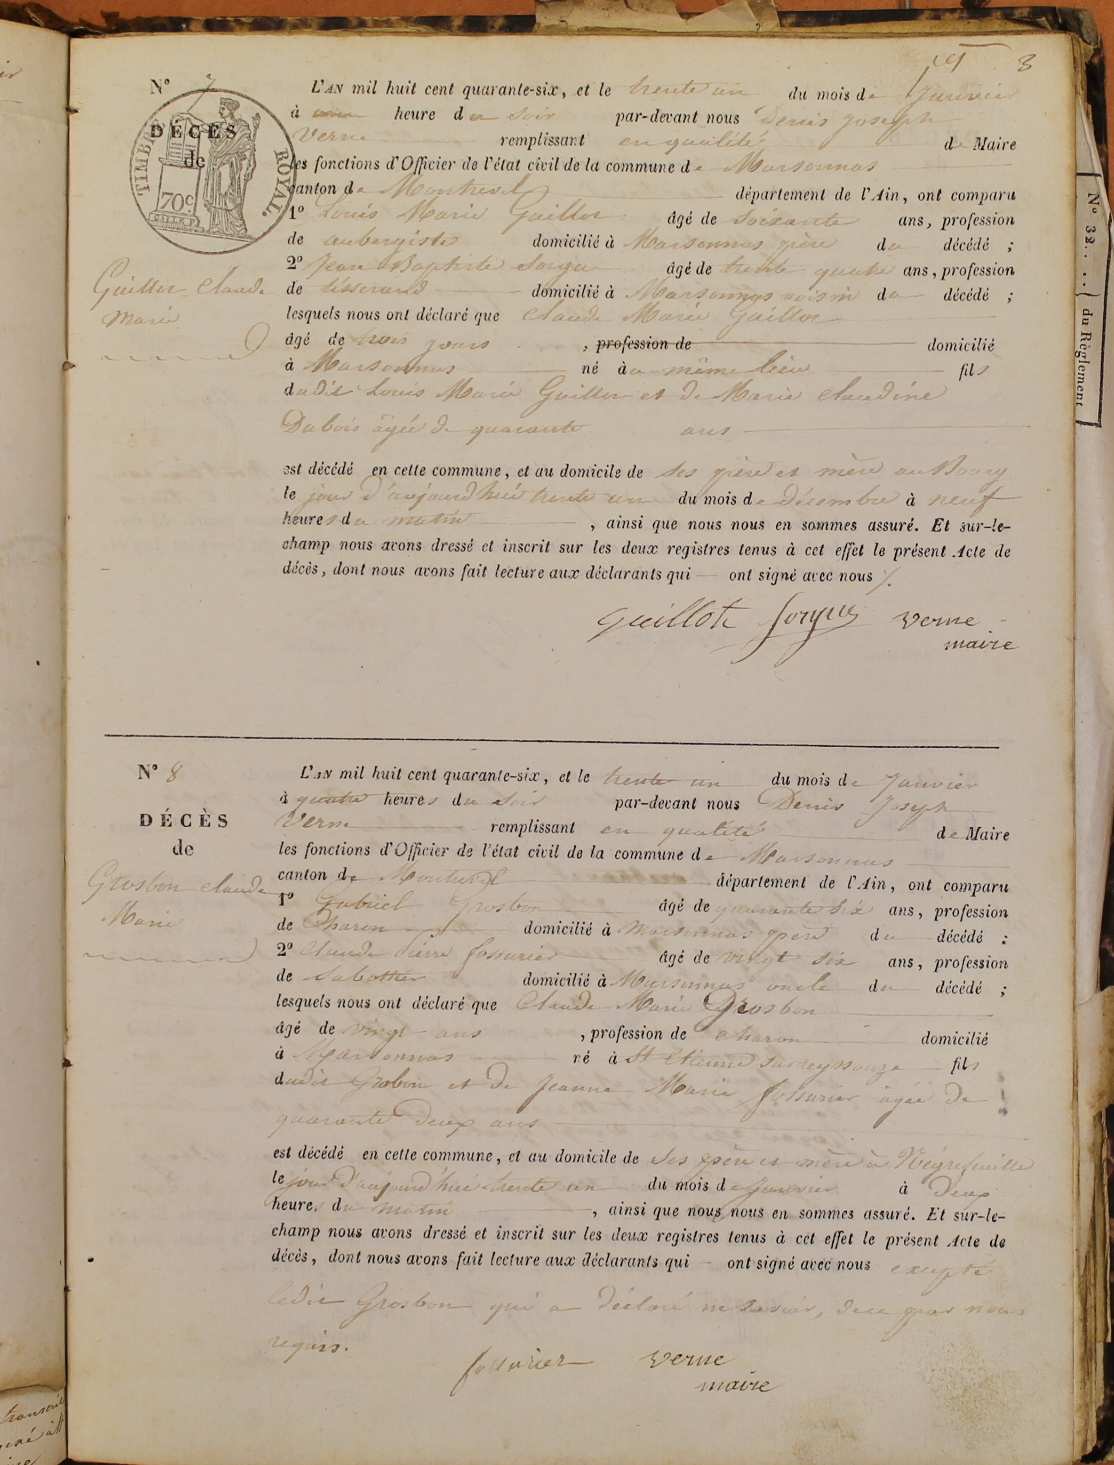 8
N° 7
DÉCÈS
de
TIMBRE ROYAL.
70c
Guillot Claude
Marie
L'AN mil huit cent quarante-six, et le trente un du mois de Janvier
à une heure du soir par-devant nous Denis Joseph
Verne remplissant en qualité de Maire
les fonctions d'Officier de l'état civil de la commune de Marsonnas
canton de Montrevel département de l'Ain, ont comparu
1° Louis Marie Guillot âgé de soixante ans, profession
de aubergiste domicilié à Marsonnas père du décédé ;
2° Jean Baptiste âgé de trente quatre ans, profession
de tisserand domicilié à Marsonnas voisin du décédé ;
lesquels nous ont déclaré que Claude Marie Guillot
âgé de trois jours , profession de domicilié
à Marsonnas né à au même lieu fils
dudit Louis Marie Guillot et de Marie Claudine
Dubois âgée de quarante ans
est décédé en cette commune, et au domicile de ses père et mère au Bourg
le jour d'aujourd'hui trente un du mois de décembre à neuf
heures du matin , ainsi que nous nous en sommes assuré. Et sur-le-
champ nous avons dressé et inscrit sur les deux registres tenus à cet effet le présent Acte de
décès, dont nous avons fait lecture aux déclarants qui ont signé avec nous
Guillot Verne
maire
N° 8
DÉCÈS
de
Grosbon Claude
Marie
L'AN mil huit cent quarante-six, et le trente un du mois de Janvier
à quatre heures du soir par-devant nous Denis Joseph
Verne remplissant en qualité de Maire
les fonctions d'Officier de l'état civil de la commune de Marsonnas
canton de Montrevel département de l'Ain, ont comparu
1° Gabriel Grosbon âgé de quarante six ans, profession
de Charon domicilié à Marsonnas père du décédé ;
2° Claude Pierre Fossurier âgé de vingt six ans, profession
de Sabotier domicilié à Marsonnas oncle du décédé ;
lesquels nous ont déclaré que Claude Marie Grosbon
âgé de vingt ans , profession de charon domicilié
à Marsonnas né à St Etienne sur Reyssouze fils
dudit Grobon et de Jeanne Marie Fossurier âgée de
quarante deux ans
est décédé en cette commune, et au domicile de ses père et mère à Négrefeuille
le jour d'aujourd'hui trente un du mois de Janvier à deux
heures du matin , ainsi que nous nous en sommes assuré. Et sur-le-
champ nous avons dressé et inscrit sur les deux registres tenus à cet effet le présent Acte de
décès, dont nous avons fait lecture aux déclarants qui ont signé avec nous excepté
ledit Grosbon qui a déclaré ne savoir, de ce par nous
requis.
Fossurier Verne
maire
N° 32.
du Règlement